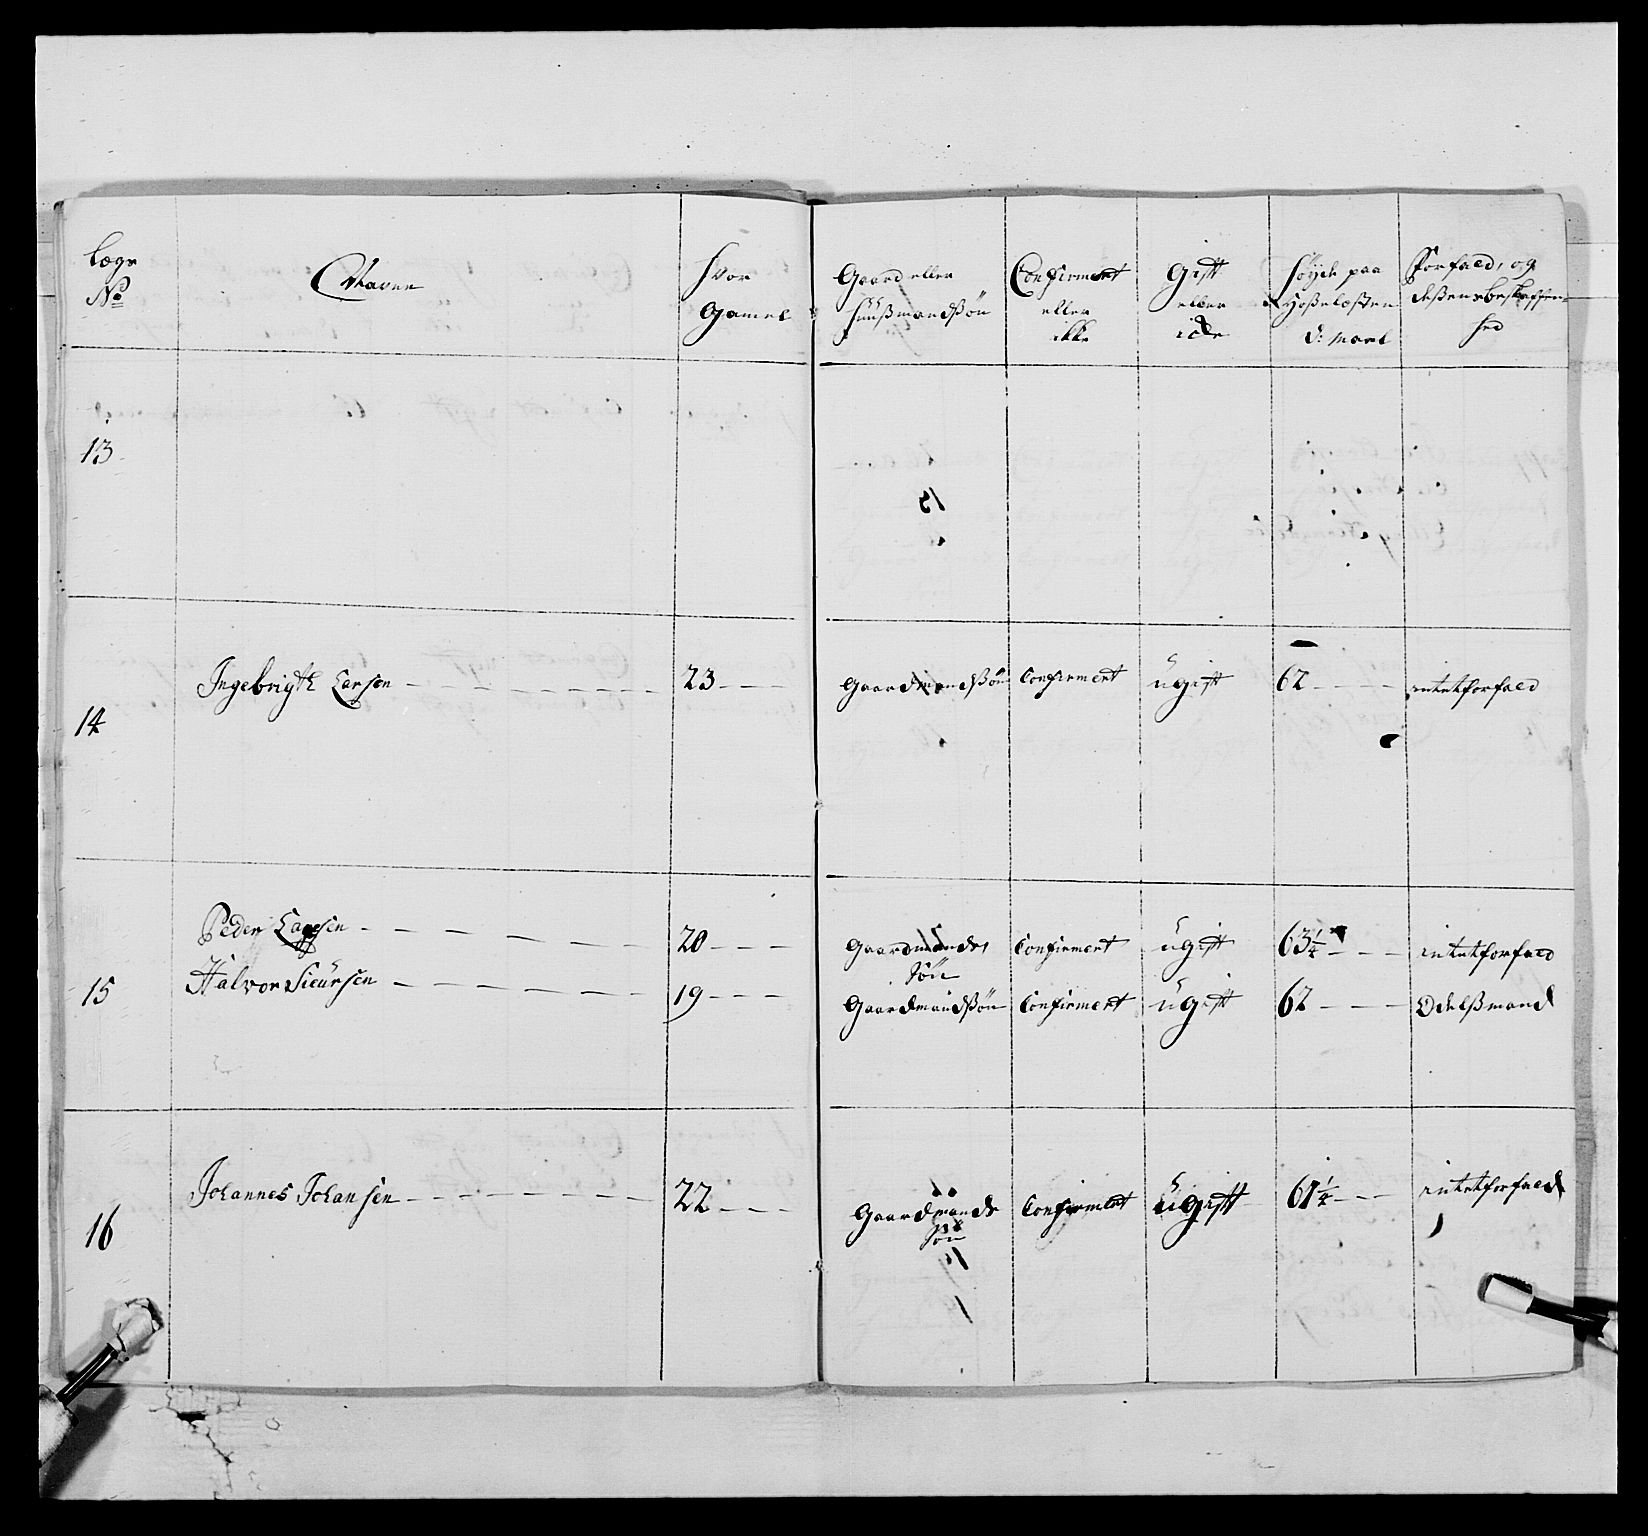 Lægs
No
Navne
Hvor
Gamel
Gaard eller
Huusmandssøn
Confirmert
eller
ikke
Gift
eller
icke
Høyde paa
Hosselosten
d: Maal
Forfald, og
dessens beskaffen-
hed
13
14
Ingebrigth Larsen
23
Gaardmandssøn
Confirmert
ugift
62
intet forfald
15
Peder Larsen
20
Gaardmands
søn
Confirmert
ugift
63 1/4
intet forfald
Halvor Siursen
19
Gaardmandssøn
Confirmert
ugift
62
Odelsmand
16
Johannes Johansen
22
Gaardmands
søn
Confirmert
ugift
61 1/4
intet forfald